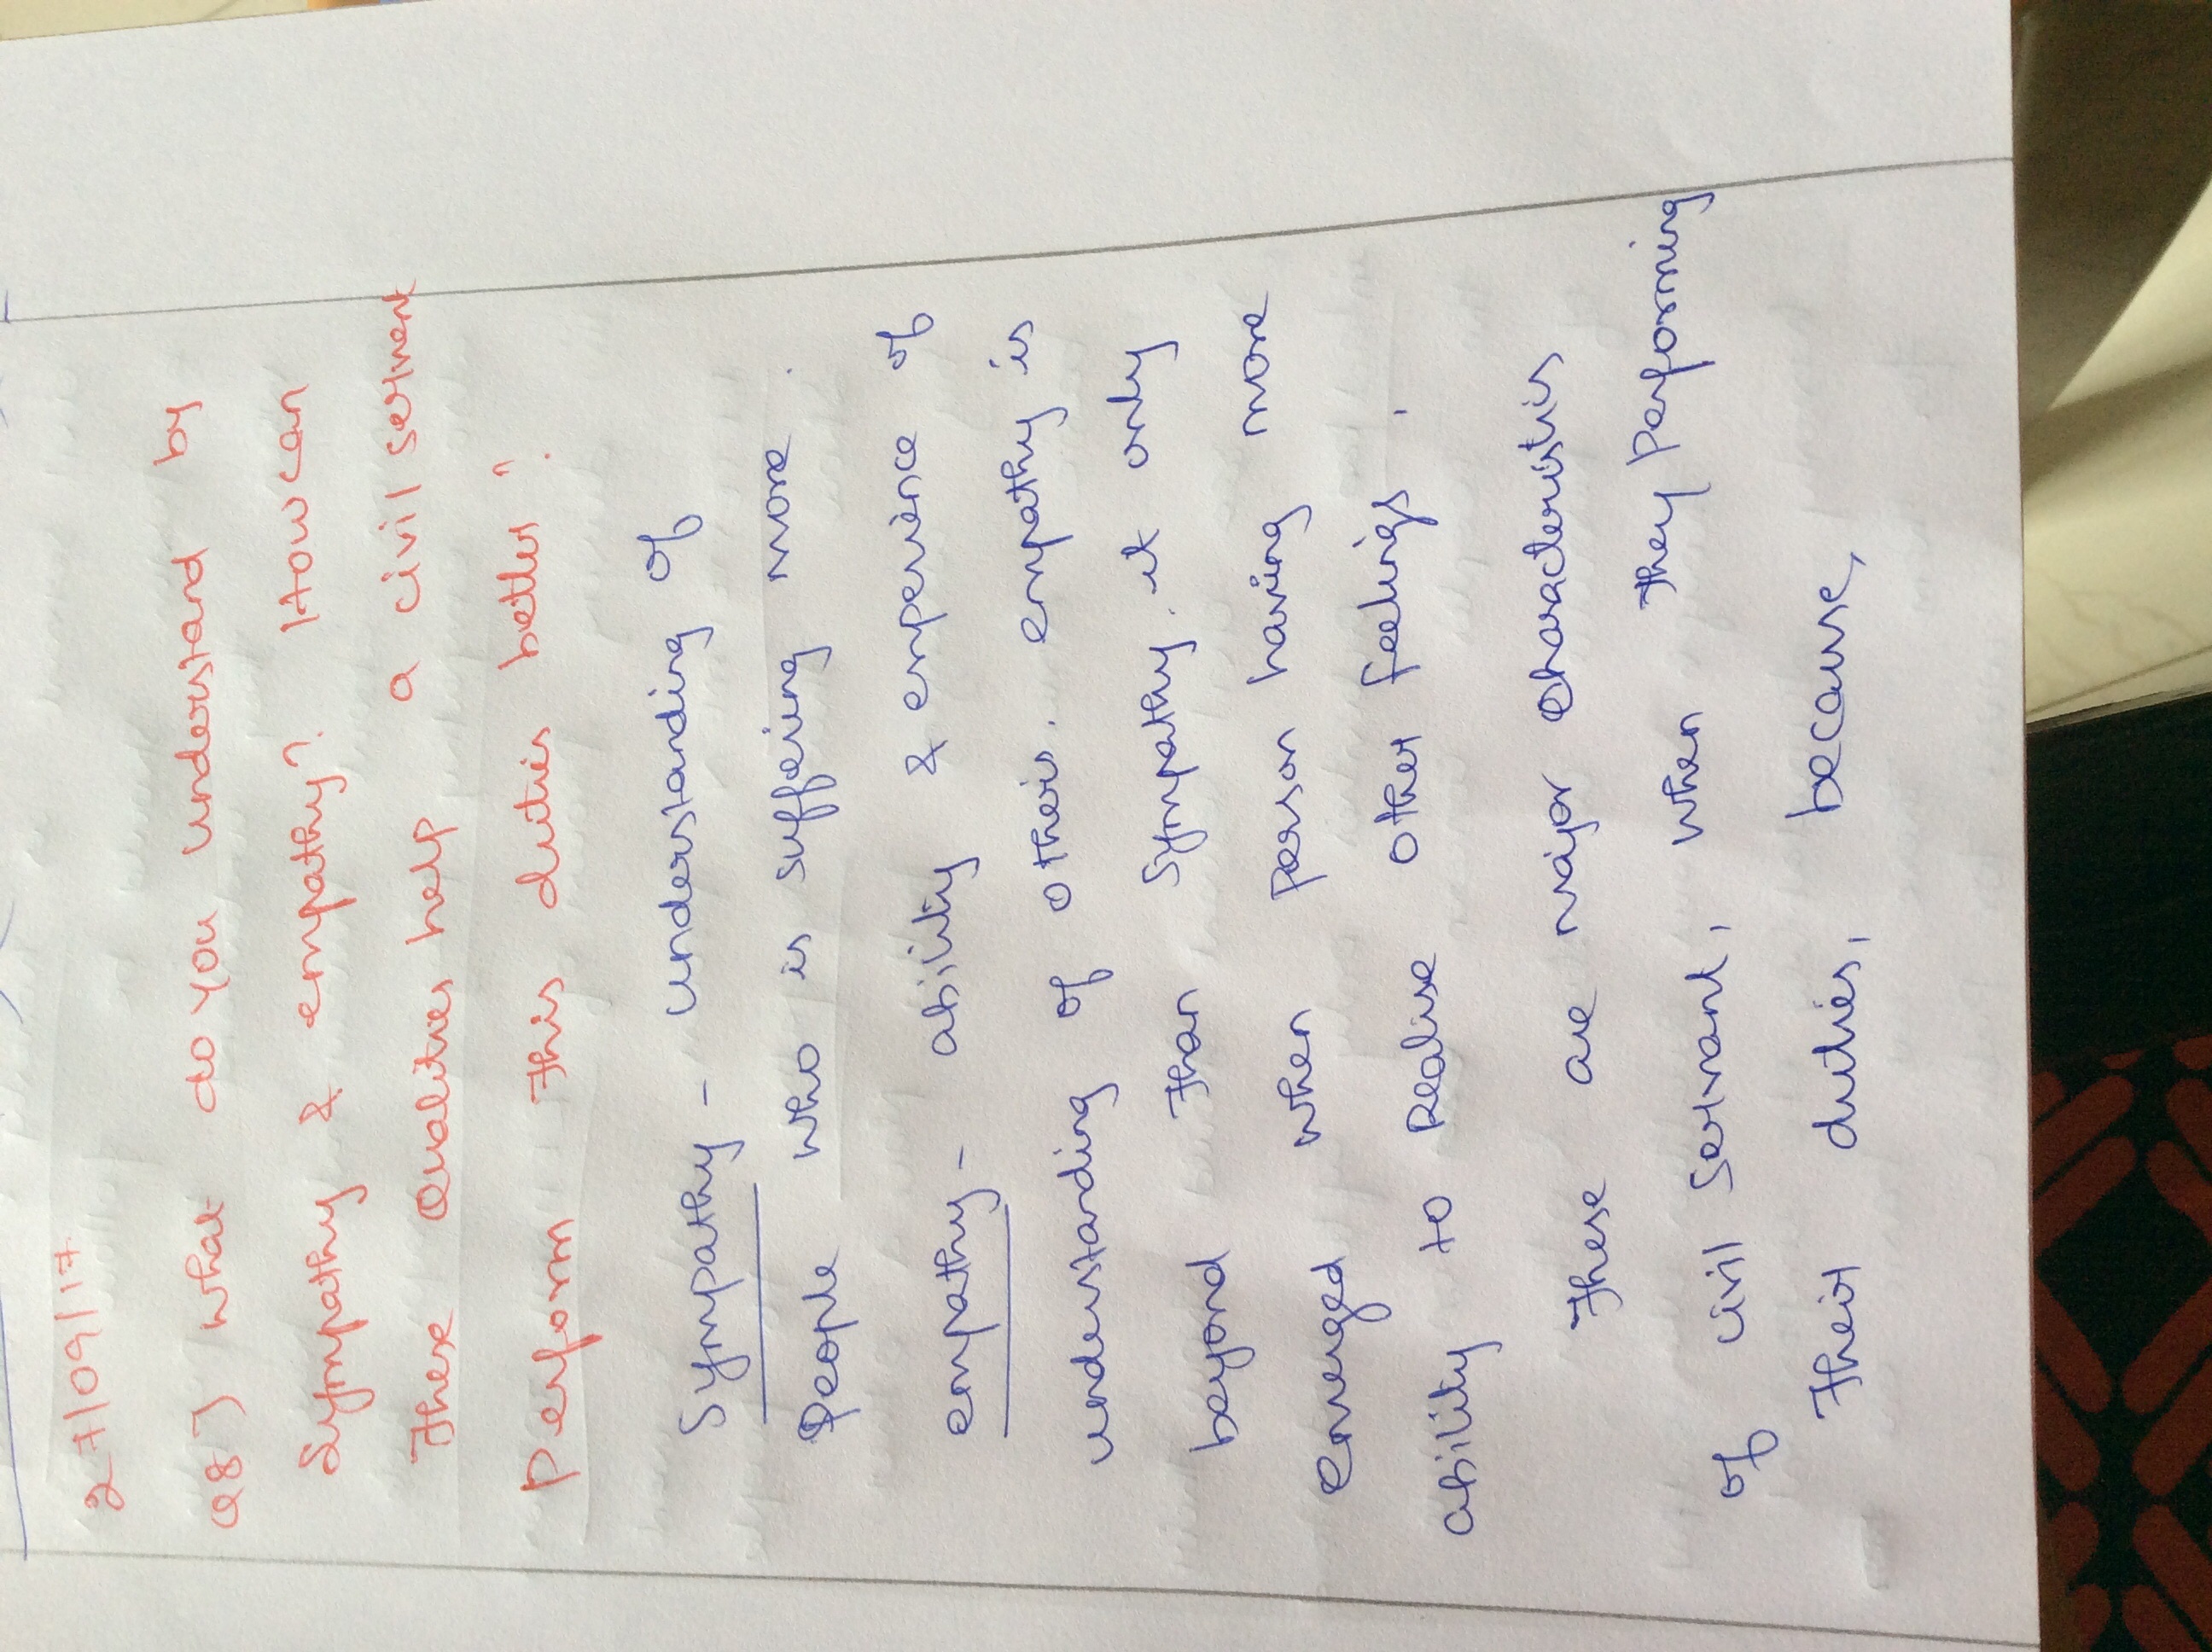 27/09/17
Q8] What do you understand by
Sympathy & empathy? How can
these Qualities help a civil servent
Perform this duties better?
Sympathy - understanding of
People who is suffeing more.
empathy - ability & enperience of
understanding of otheis. empathy is
beyond than Sympathy. it only
emerged when person having more
ability to Realise other feelings.
These are major characteristis
of civil Servant, when they Performing
Their duties, because,